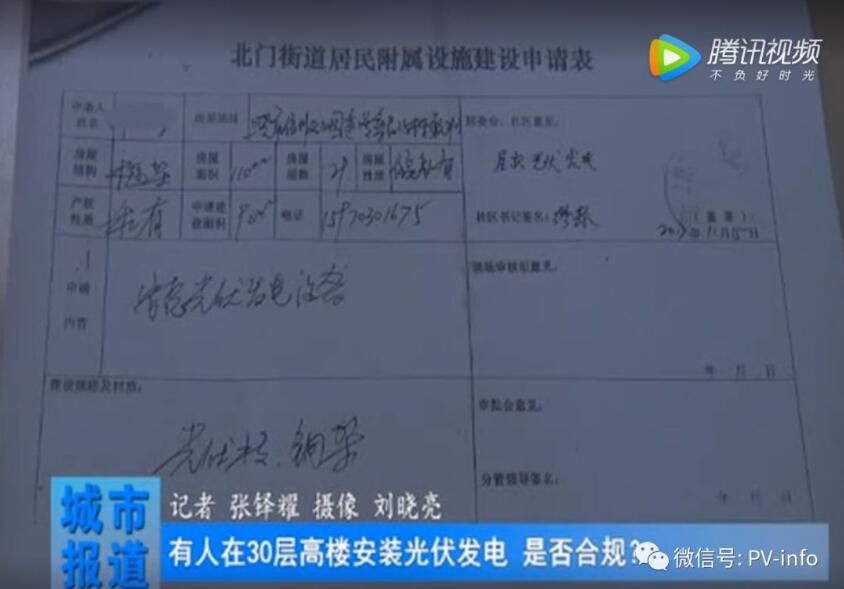 腾讯视频
不负好时光
北门街道居民附属设施建设申请表
申请人姓名
房屋地址
居委会、社区意见:
屋顶光伏发电
房屋结构
框架
房屋面积
110m²
房屋层数
房屋性质
产权性质
私有
申请建设面积
电话
15970301675
社区书记签名:
(盖章)
申请内容
安装光伏发电设备
现场审核组意见:
年 月 日
建设规格及材质:
光伏板、钢架
审批会意见:
分管领导签名:
年 月 日
城市报道
记者 张铎耀 摄像 刘晓亮
有人在30层高楼安装光伏发电 是否合规?
微信号: PV-info